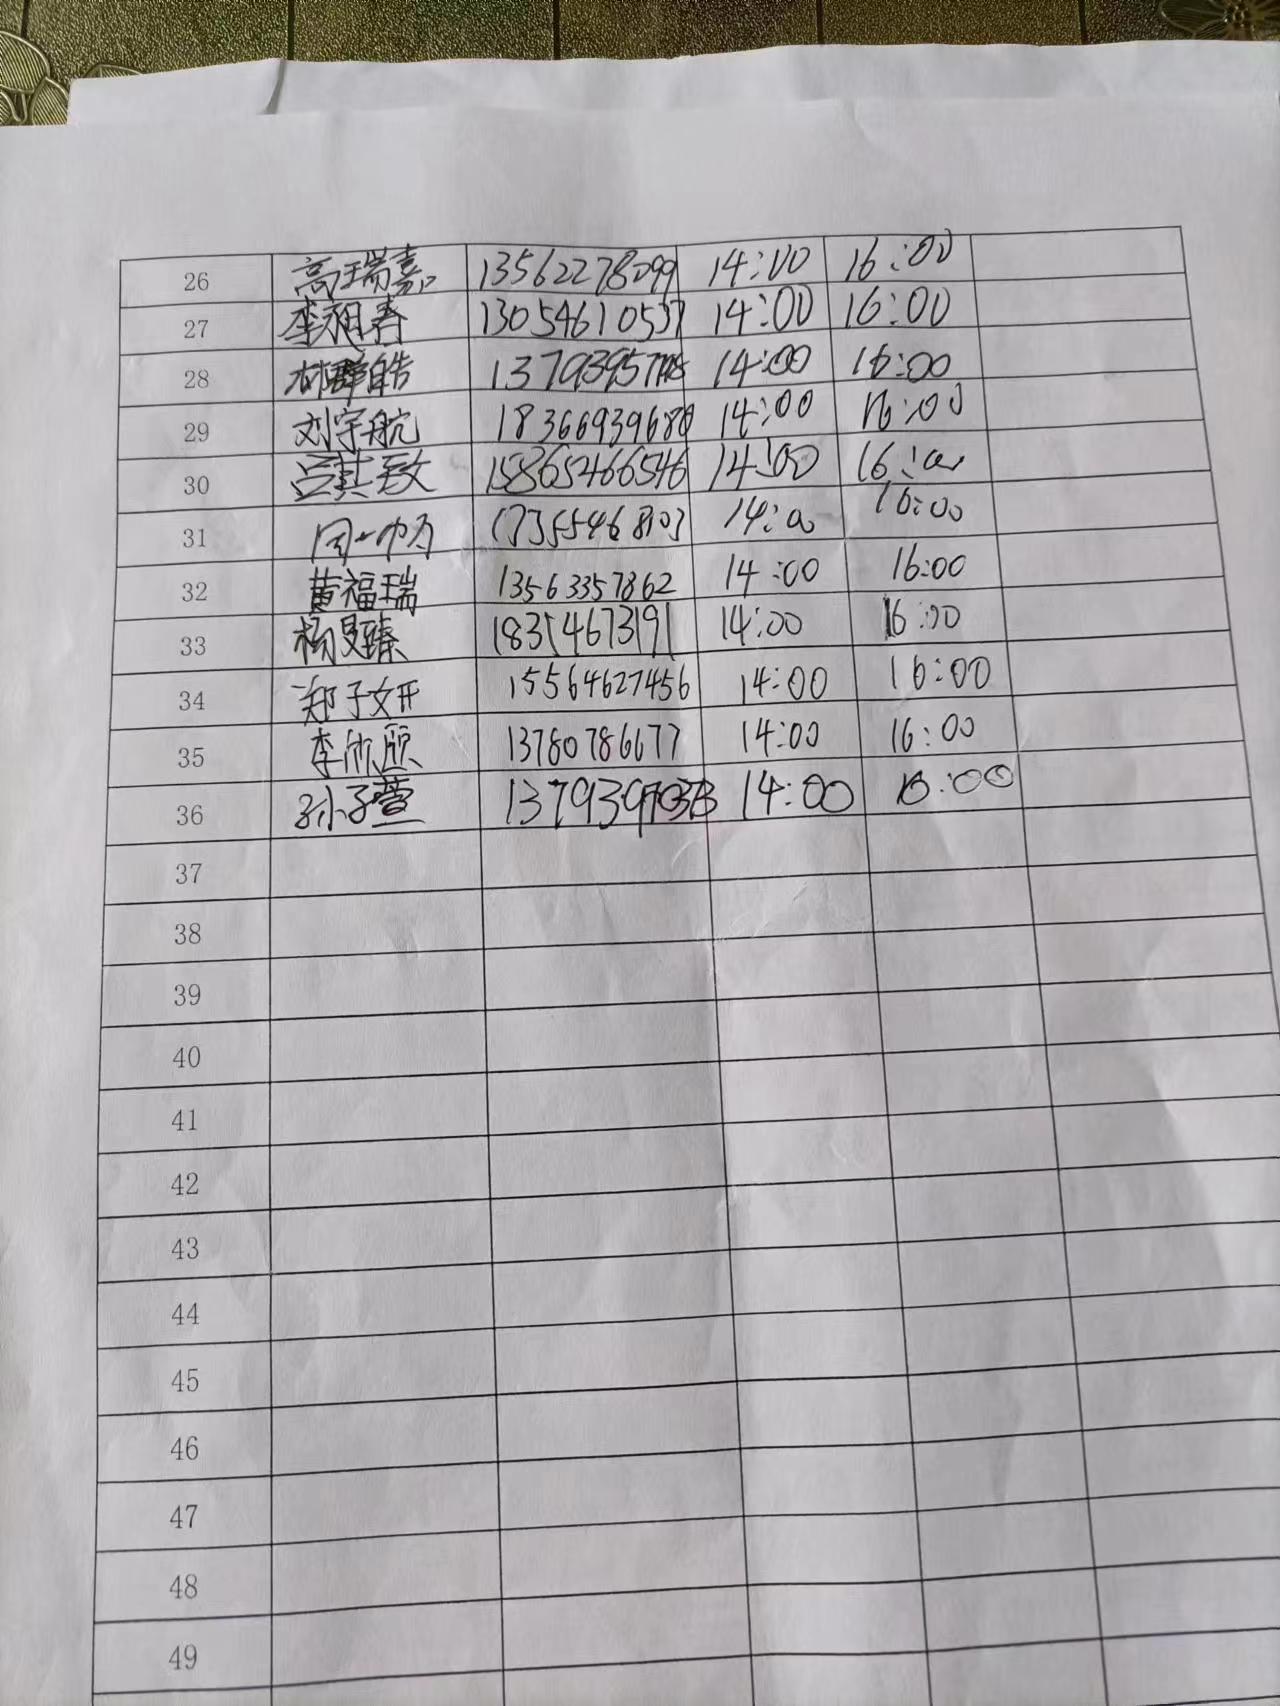 26 高瑞嘉 13562278099 14:00 16:00
27 李昶春 13054610537 14:00 16:00
28 林 皓 14:00 16:00
29 刘宇航 18366939680 14:00 16:00
30 吕其致 15865466546 14:00 16:00
31 周一帆 14:00 16:00
32 黄福瑞 13563357862 14:00 16:00
33 杨 臻 18354673191 14:00 16:00
34 郑子妍 15564627456 14:00 16:00
35 李欣颐 13780786677 14:00 16:00
36 孙子萱 14:00 16:00
37
38
39
40
41
42
43
44
45
46
47
48
49